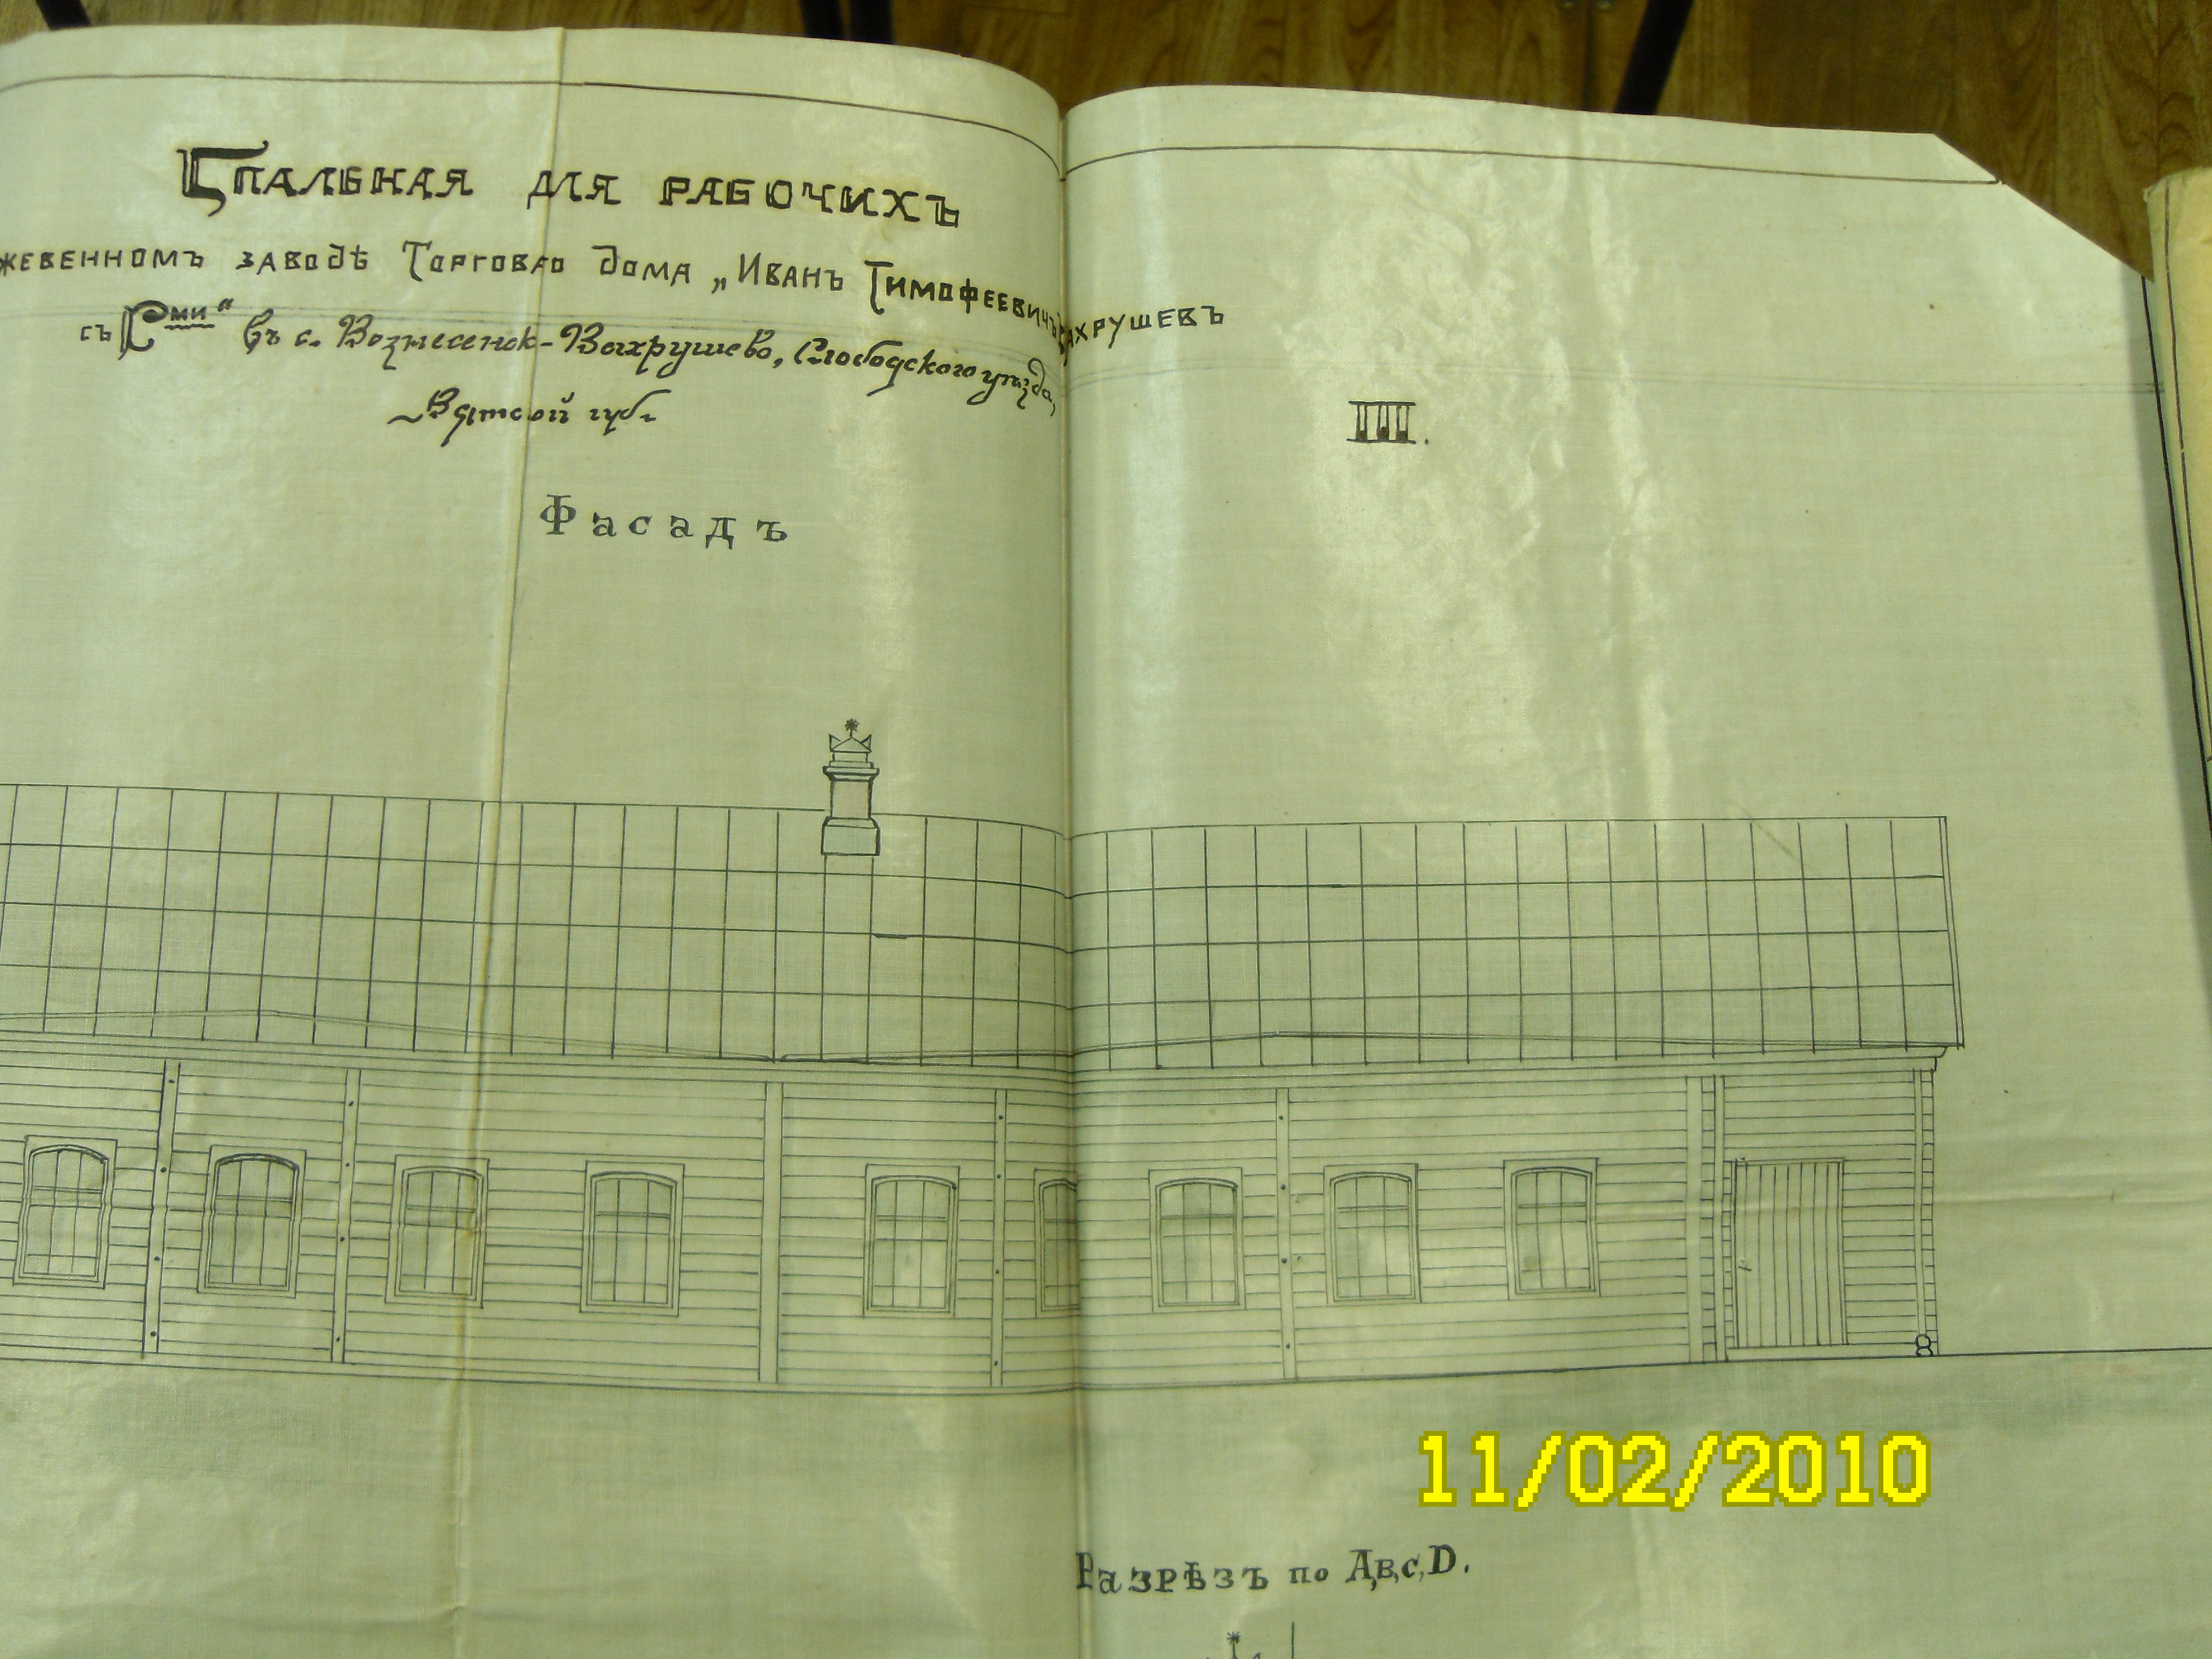 Спальная для рабочихъ
жевенномъ заводѣ Торговаго дома „Иванъ Тимофеевичъ Вахрушевъ
съ Сми“ въ с. Вознесенск-Вахрушево, Слободского уѣзда,
Вятской губ.
IIII.
Фасадъ
8
11/02/2010
Разрѣзъ по A,B,C,D.